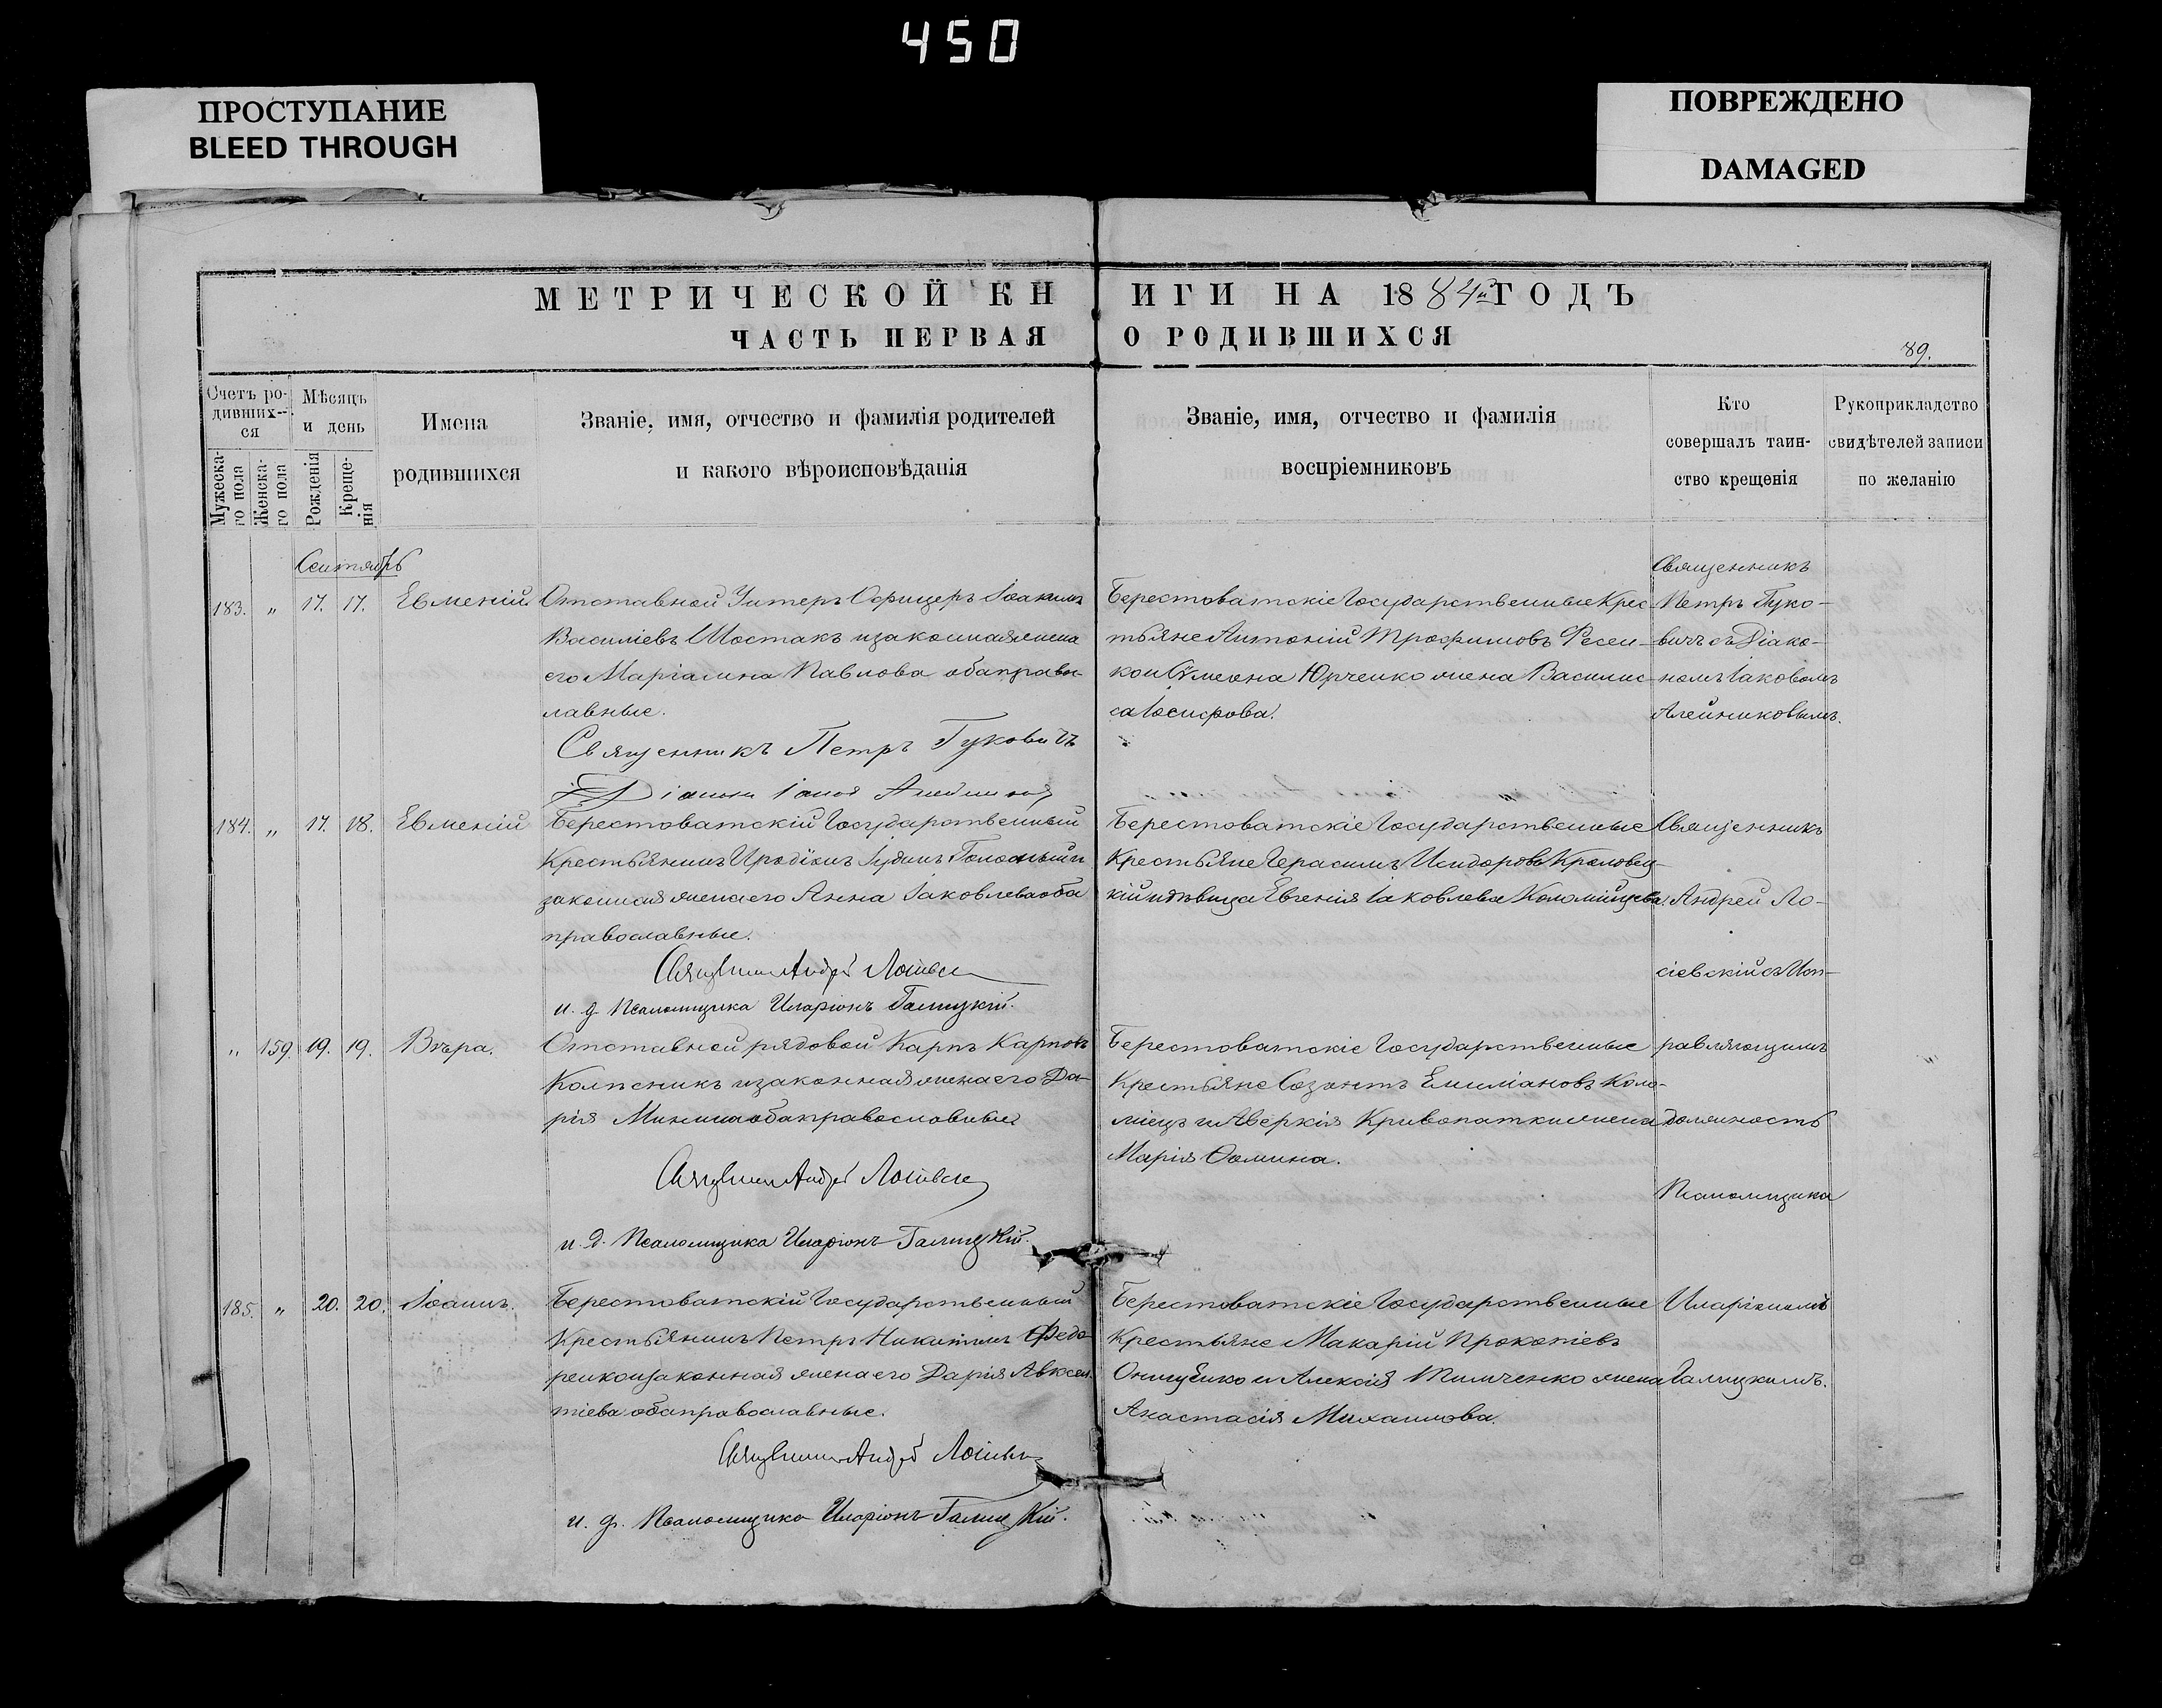 450
ПРОСТУПАНИЕ
BLEED THROUGH
ПОВРЕЖДЕНО
DAMAGED
МЕТРИЧЕСКОЙ КНИГИ НА 1884й ГОДЪ
ЧАСТЬ ПЕРВАЯ О РОДИВШИХСЯ
89.
Счетъ ро-
дивших-
ся
Мужеска-
го пола
Женска-
го пола
Мѣсяцъ
и день
Рожденія
Креще-
нія
Имена
родившихся
Званіе, имя, отчество и фамилія родителей
и какого вѣроисповѣданія
Званіе, имя, отчество и фамилія
воспріемниковъ
Кто
совершалъ таин-
ство крещенія
Рукоприкладство
свидѣтелей записи
по желанію
Сентябрь
183. " 17. 17. Евменій.
Отставной Унтеръ Офицеръ Іоакимъ
Василіевъ Шостакъ и законная жена
его Маріамна Павлова оба право-
лавные.
Священникъ Петръ Гуковичъ
Берестоватскіе Государственные Крес-
тьяне Антоній Трофимовъ Фесен-
ко и Сѵмеона Юрченко жена Василис-
са Іосифова.
Священникъ
Петръ Гуко-
вичъ съ Діако-
номъ Іаковомъ
Алейниковымъ.
184. " 17. 18. Евменій
Берестоватскій Государственный
Крестьянинъ Иродіонъ Іудинъ и
законная жена его Анна Іаковлева оба
православные.
Священникъ Андрей
и. д. Псаломщика Иларіонъ Галицкій.
Берестоватскіе Государственные
Крестьяне Герасимъ Исидоровъ
кій и дѣвица Евгенія Іаковлева Коломійцева.
Священникъ
Андрей Ло-
сіевскій съ Исп-
" 159. 19. 19. Вѣра.
Отставной рядовой Карпъ Карповъ
Колѣсникъ и законная жена его Да-
рія Минина оба православные
Священникъ Андрей
и. д. Псаломщика Иларіонъ Галицкій.
Берестоватскіе Государственные
Крестьяне Созонтъ Емиліановъ Коло-
міецъ и Аверкія Кривопатки жена
Марія Ѳомина.
равляющимъ
должность
Псаломщика
185. " 20. 20. Іоаннъ.
Берестоватскій Государственный
Крестьянинъ Петръ Никитинъ Федо-
ренко и законная жена его Дарія Авксен-
тіева оба православные.
Священникъ Андрей
и. д. Псаломщика Иларіонъ Галицкій.
Берестоватскіе Государственные
Крестьяне Макарій Прокопіевъ
Онищенко и Алексія Тимченко жена
Анастасія Михаилова.
Иларіономъ
Галицкимъ.